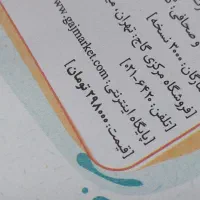 و صحافی:
شمارگان: ۳۰۰۰ نسخه]
[فروشگاه مرکزی گاج: تهران،
[تلفن: ۶۴۲۰-۰۲۱]
[پایگاه اینترنتی: www.gajmarket.com
[قیمت: ۲۹۸۰۰۰ تومان]